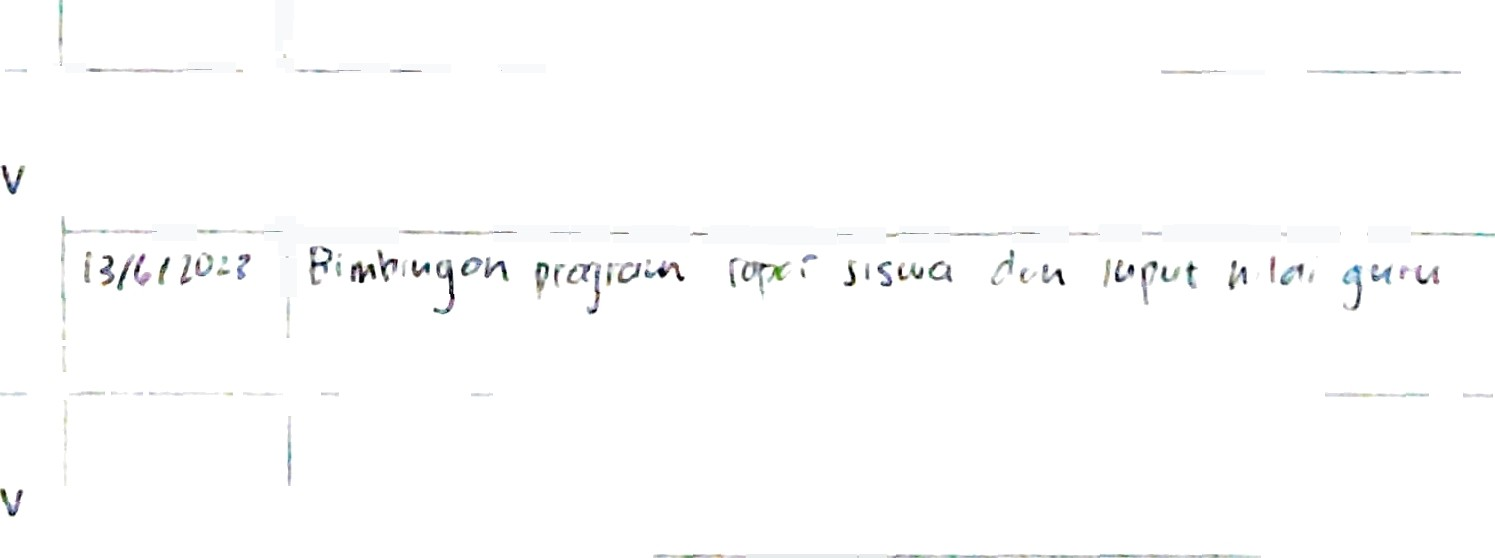 V
13/6/2023 Bimbingan program rapor siswa dan input nilai guru
V